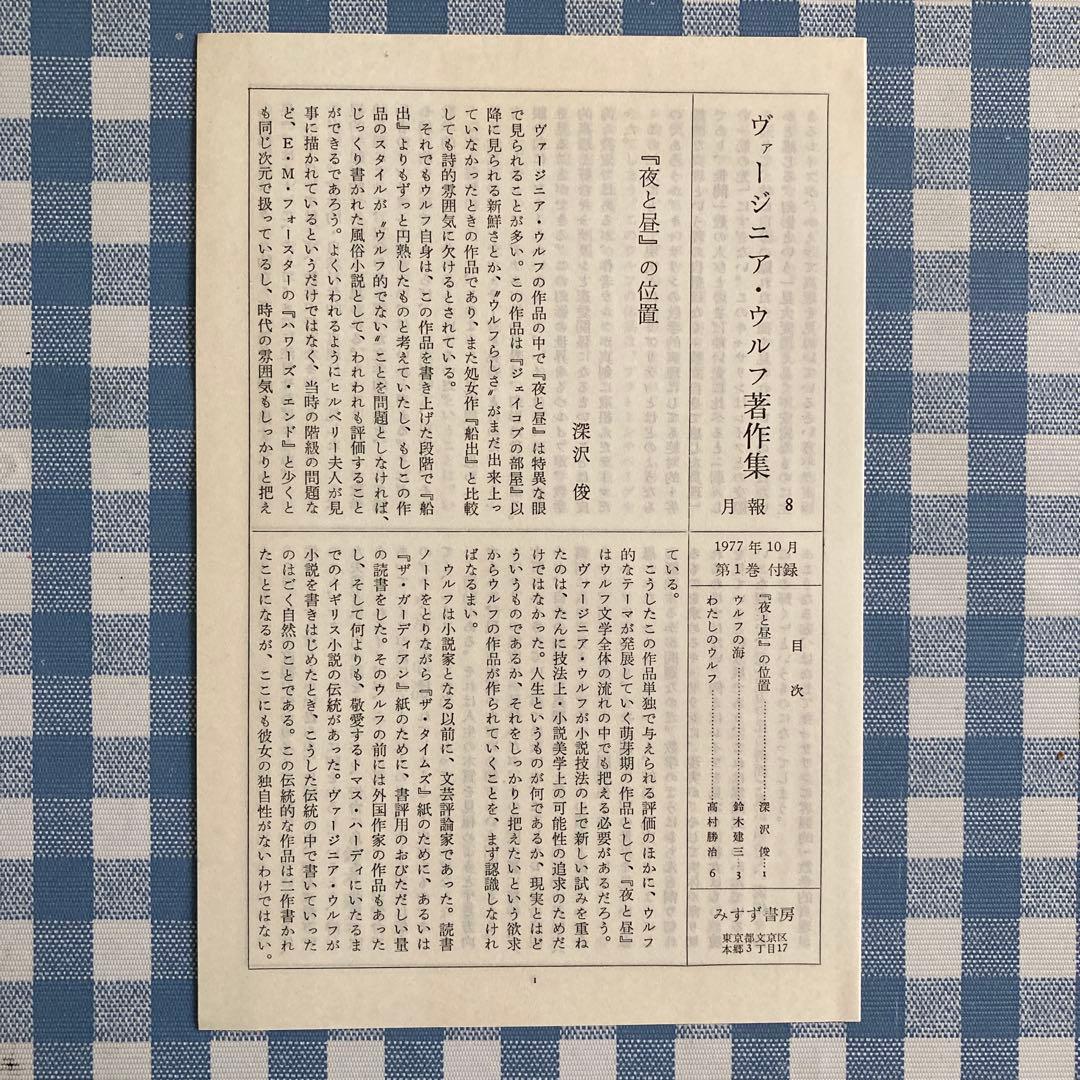 ヴァージニア・ウルフ著作集
月報 8
1977年10月
第1巻 付録
目次
『夜と昼』の位置……………深沢 俊…1
ウルフの海……………鈴木建三…3
わたしのウルフ……………高村勝治 6
みすず書房
東京都文京区
本郷3丁目17
『夜と昼』の位置
深沢 俊
ヴァージニア・ウルフの作品の中で『夜と昼』は特異な眼
で見られることが多い。この作品は『ジェイコブの部屋』以
降に見られる新鮮さとか、〝ウルフらしさ〟がまだ出来上っ
ていなかったときの作品であり、また処女作『船出』と比較
しても詩的雰囲気に欠けるとされている。
それでもウルフ自身は、この作品を書き上げた段階で『船
出』よりもずっと円熟したものと考えていたし、もしこの作
品のスタイルが〝ウルフ的でない〟ことを問題としなければ、
じっくり書かれた風俗小説として、われわれも評価すること
ができるであろう。よくいわれるようにヒルベリー夫人が見
事に描かれているというだけではなく、当時の階級の問題な
ど、E・M・フォースターの『ハワーズ・エンド』と少くと
も同じ次元で扱っているし、時代の雰囲気もしっかりと把え
ている。
こうしたこの作品単独で与えられる評価のほかに、ウルフ
的なテーマが発展していく萌芽期の作品として、『夜と昼』
はウルフ文学全体の流れの中でも把える必要があるだろう。
ヴァージニア・ウルフが小説技法の上で新しい試みを重ね
たのは、たんに技法上・小説美学上の可能性の追求のためだ
けではなかった。人生というものが何であるか、現実とはど
ういうものであるか、それをしっかりと把えたいという欲求
からウルフの作品が作られていくことを、まず認識しなけれ
ばなるまい。
ウルフは小説家となる以前に、文芸評論家であった。読書
ノートをとりながら『ザ・タイムズ』紙のために、あるいは
『ザ・ガーディアン』紙のために、書評用のおびただしい量
の読書をした。そのウルフの前には外国作家の作品もあった
し、そして何よりも、敬愛するトマス・ハーディにいたるま
でのイギリス小説の伝統があった。ヴァージニア・ウルフが
小説を書きはじめたとき、こうした伝統の中で書いていった
のはごく自然のことである。この伝統的な作品は二作書かれ
たことになるが、ここにも彼女の独自性がないわけではない。
1